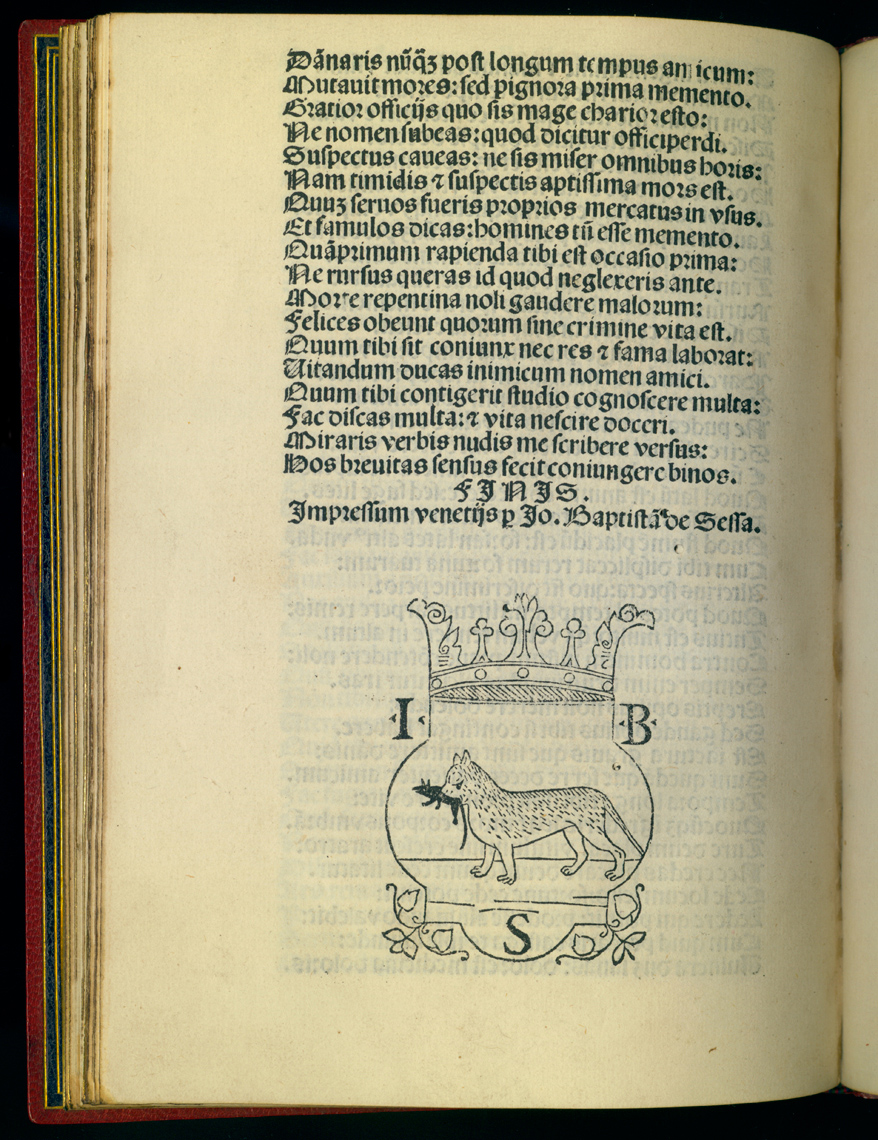 Dãnaris nũq̃ꝫ post longum tempus amicum:
Mutauit mores: sed pignora prima memento.
Gratior officijs quo sis mage charior esto:
Ne nomen subeas: quod dicitur officiperdi.
Suspectus caueas: ne sis miser omnibus horis:
Nam timidis ⁊ suspectis aptissima mors est.
Quuꝫ seruos fueris proprios mercatus in vsus.
Et famulos dicas: homines tñ esse memento.
Quãprimum rapienda tibi est occasio prima:
Ne rursus queras id quod neglexeris ante.
Morte repentina noli gaudere malorum:
Felices obeunt quorum sine crimine vita est.
Quum tibi sit coniunx nec res ⁊ fama laborat:
Uitandum ducas inimicum nomen amici.
Quum tibi contigerit studio cognoscere multa:
Fac discas multa: ⁊ vita nescire doceri.
Miraris verbis nudis me scribere versus:
Hos breuitas sensus fecit coniungere binos.
FINIS.
Impressum venetijs ꝑ Jo. Baptistã de Sessa.
I B
S